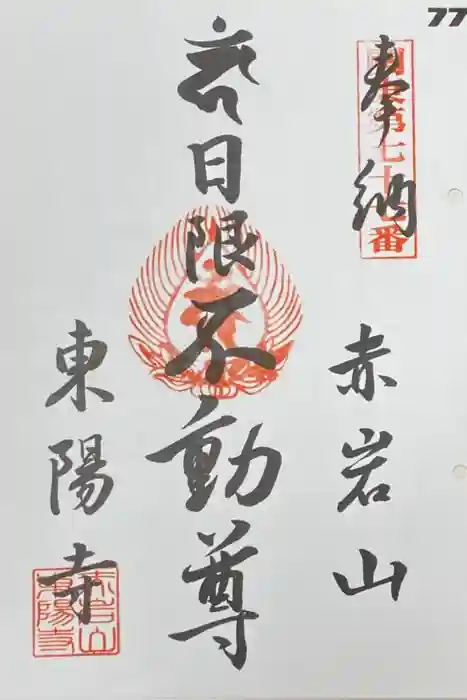 77
奉納
第七十七番
赤岩山
日限不動尊
東陽寺
赤岩山
東陽寺